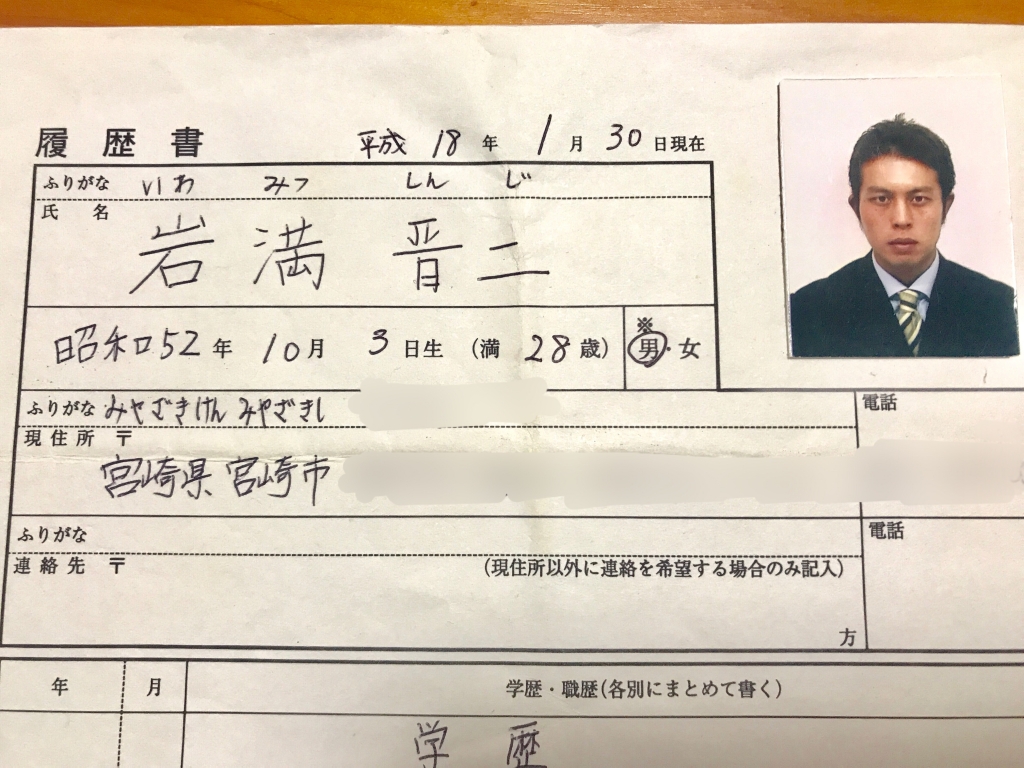 履歴書 平成 18 年 1 月 30 日現在
ふりがな いわ みつ しん じ
氏名 岩満 晋二
昭和52年 10月 3日生 (満 28歳) ※ 男・女
ふりがな みやざきけん みやざきし
電話
現住所 〒
宮崎県 宮崎市
ふりがな
電話
連絡先 〒 (現住所以外に連絡を希望する場合のみ記入)
方
年 月 学歴・職歴(各別にまとめて書く)
学歴